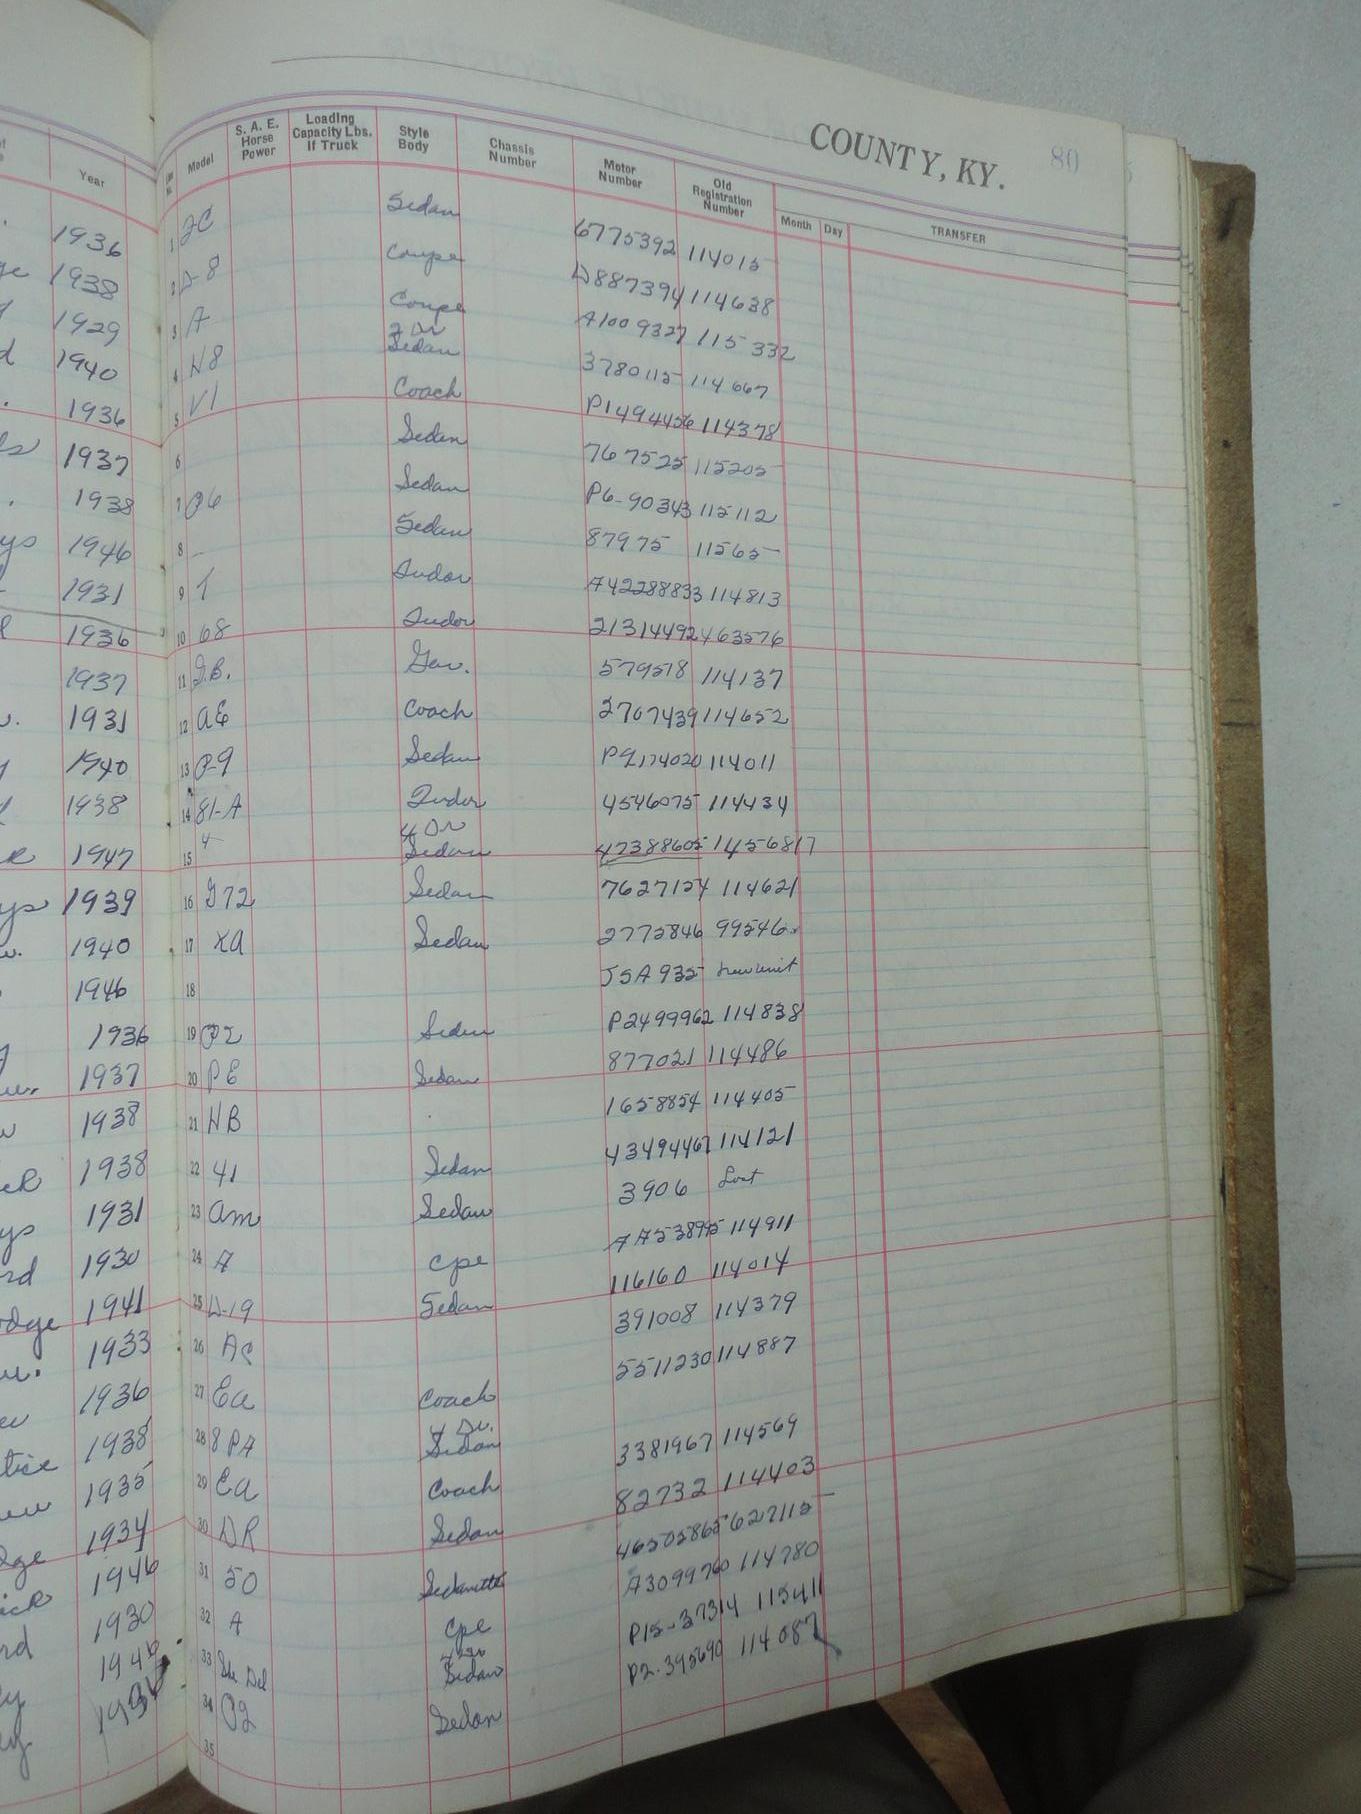 COUNTY, KY. 80
Year Model S. A. E. Horse Power Loading Capacity Lbs. If Truck Style Body Chassis Number Motor Number Old Registration Number Month Day TRANSFER
1936 1 2C Sedan 6775392 114015
1938 2 D-8 Coupe D887394 114638
1929 3 A Coupe A1009327 115332
1940 4 H8 2 Dr Sedan 3780115 114667
1936 5 V1 Coach P1494456 114378
1937 6 Sedan 767525 115205
1938 7 P6 Sedan P6-90343 115112
1946 8 Sedan 87975 11565
1931 9 Tudor A42288833 114813
1936 10 68 Tudor 21314492 463576
1937 11 G.B. 579578 114137
1931 12 AE Coach 2707439 114652
1940 13 P-9 Sedan P9174020 114011
1938 14 81-A Tudor 4546075 114434
1947 15 4 Dr Sedan 47388605 1456817
1939 16 G72 Sedan 7627124 114621
1940 17 KA Sedan 2775846 99546
1946 18 JSA 935 New unit
1936 19 P2 Sedan P2499962 114838
1937 20 PE Sedan 877021 114486
1938 21 HB 1658854 114405
1938 22 41 Sedan 43494467 114121
1931 23 am Sedan 3906 Lost
1930 24 A Cpe AA53895 114911
1941 25 D-19 Sedan 116160 114014
1933 26 Ac 391008 114379
1936 27 Ea Coach 5511230 114887
1938 28 8PA 4 Dr. Sedan
1935 29 Ea Coach 3381967 114569
1934 30 DR Sedan 82732 114403
1946 31 50 Sedanette 46505865 627115
1930 32 A Cpe A3099760 114780
1946 33 Spe Del Sedan P15-37314 115411
1936 34 P2 Sedan P2-395690 114087
35